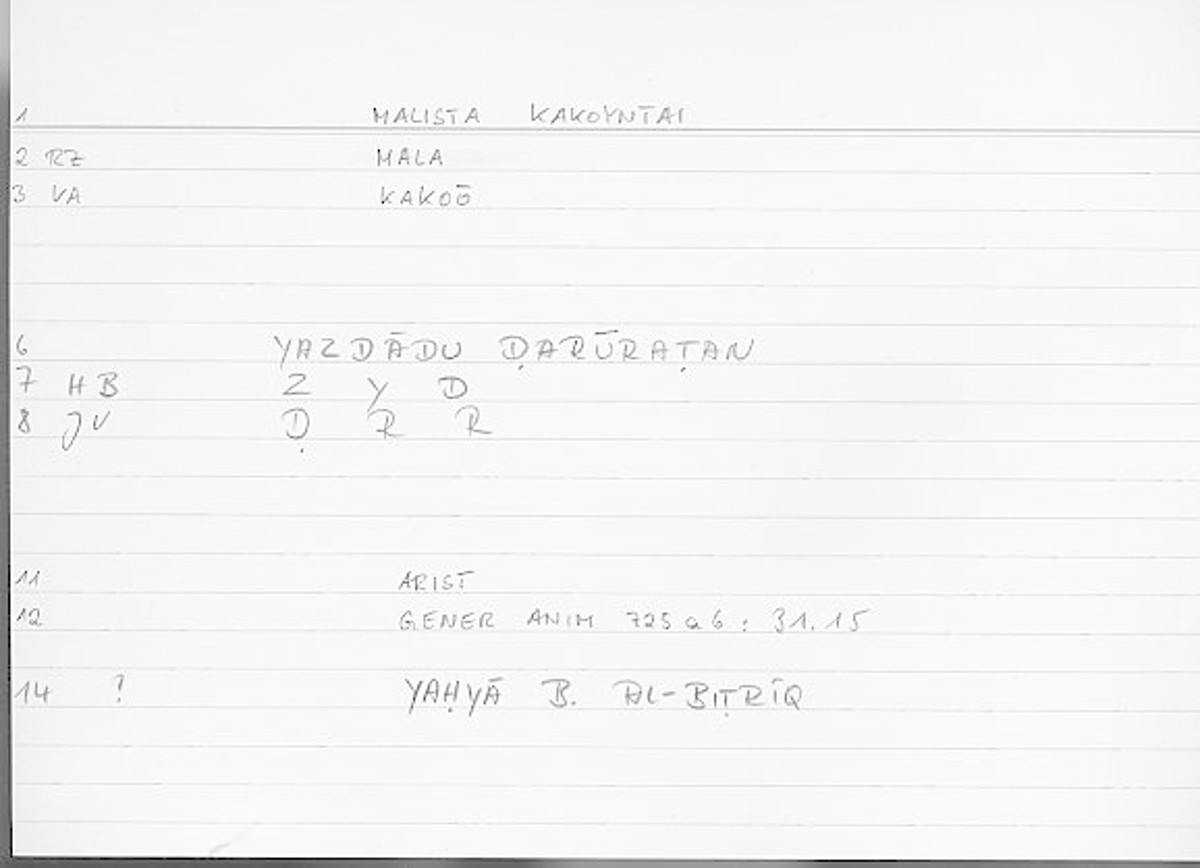 1 MALISTA KAKOYNTAI
2 RZ MALA
3 VA KAKOŌ
6 YAZDĀDU ḌARŪRAṬAN
7 HB Z Y D
8 JV Ḍ R R
11 ARIST
12 GENER ANIM 725 a 6 : 31.15
14 ? YAḤYĀ B. AL-BIṬRĪQ